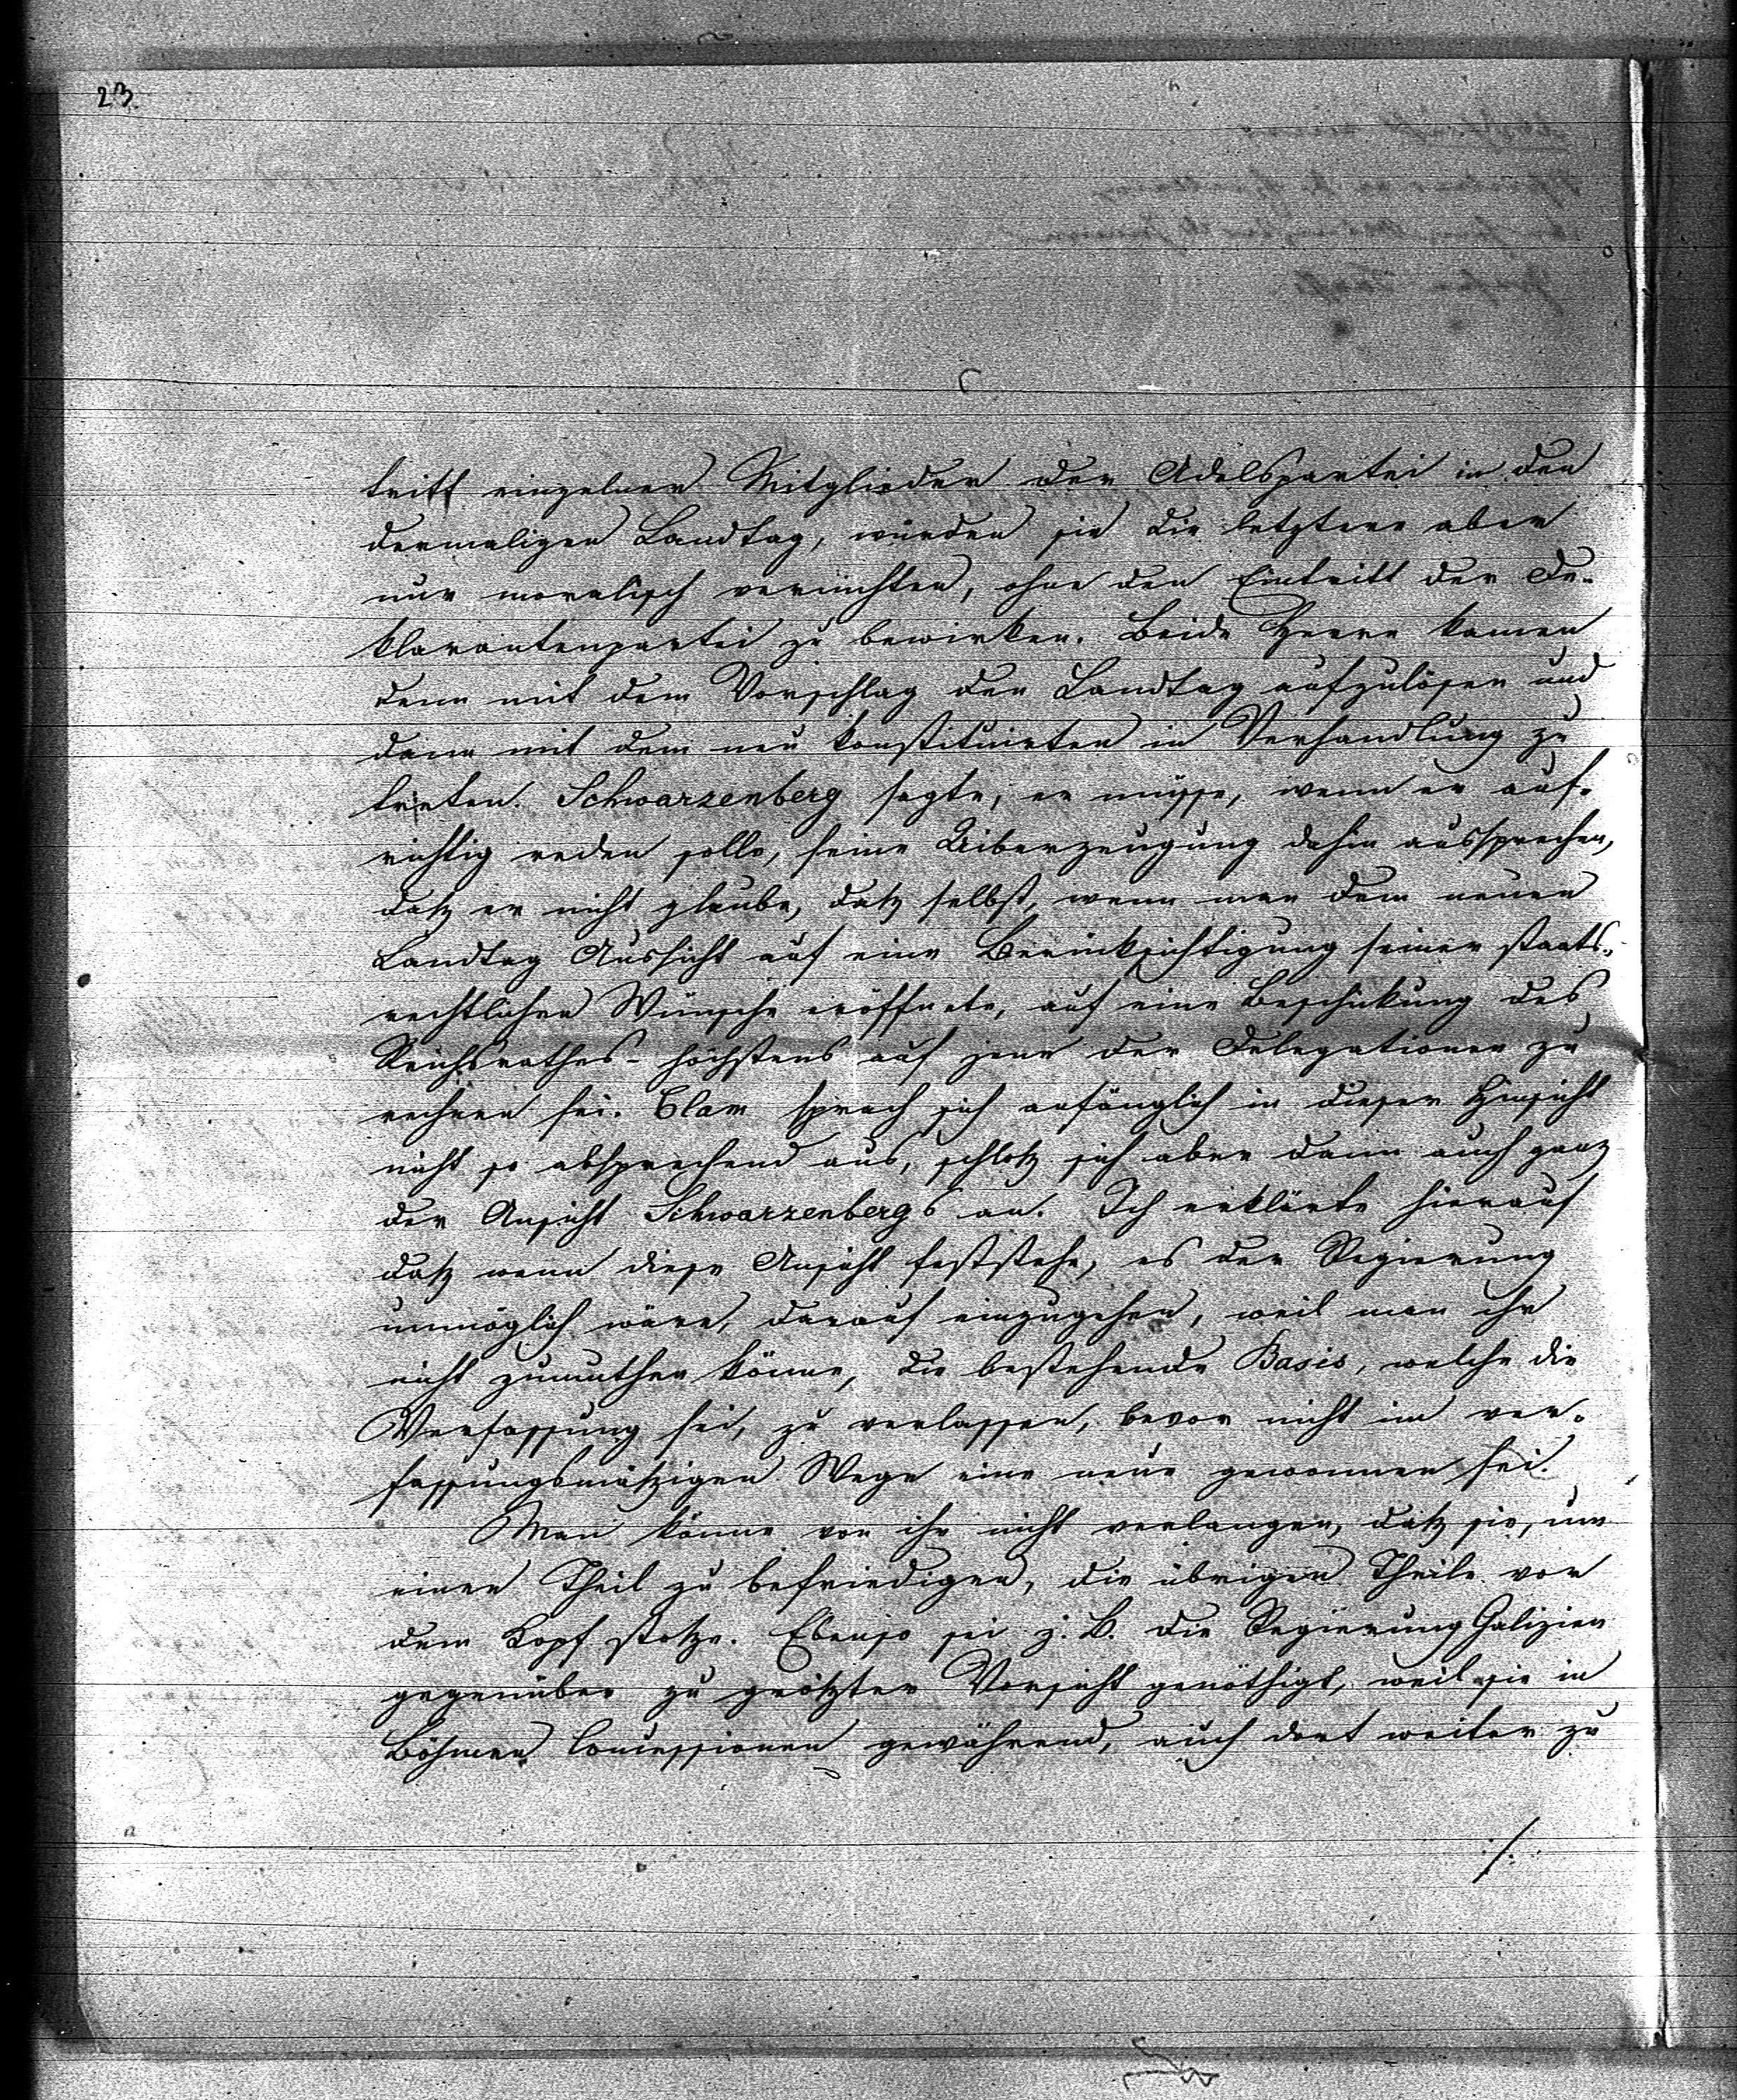 23
tritt einzelner Mitglieder der Adelspartei in den
dermaligen Landtag, würden sie die letztere aber
nur moralisch vernichten, ohne den Eintritt der De-
klarantenpartei zu bewirken. Beide Herrn kamen
denn mit dem Vorschlag den Landtag aufzulösen und
dann mit dem neu konstituirten in Verhandlung zu
treten. Schwarzenberg sagte, er müsse, wenn er auf-
richtig reden solle, seine Uiberzeugung dahin aussprechen,
daß er nicht glaube, daß selbst, wenn man dem neuen
Landtag Aussicht auf eine Berücksichtigung seiner staats-
rechtlichen Wünsche eröffnete, auf eine Beschickung des
Reichsrathes - höchstens auf jene der Delegationen zu
rechnen sei. Clam sprach sich anfänglich in dieser Hinsicht
nicht so absprechend aus, schloß sich aber dann auch ganz
der Ansicht Schwarzenbergs an. Ich erklärte hierauf
daß wenn diese Ansicht feststehe, es der Regierung
unmöglich wäre, darauf einzugehen, weil man ihr
nicht zumuthen könne, die bestehende Basis, welche die
Verfassung sei, zu verlassen, bevor nicht im ver-
fassungsmäßigen Wege eine neue gewonnen sei.
Man könne von ihr nicht verlangen, daß sie, um
einen Theil zu befriedigen, die übrigen Theile vor
dem Kopf stoße. Ebenso sei z. B. die Regierung Galizien
gegenüber zu größter Vorsicht genöthigt, weil sie in
Böhmen Concessionen gewährend, auch dort weiter zu
./.